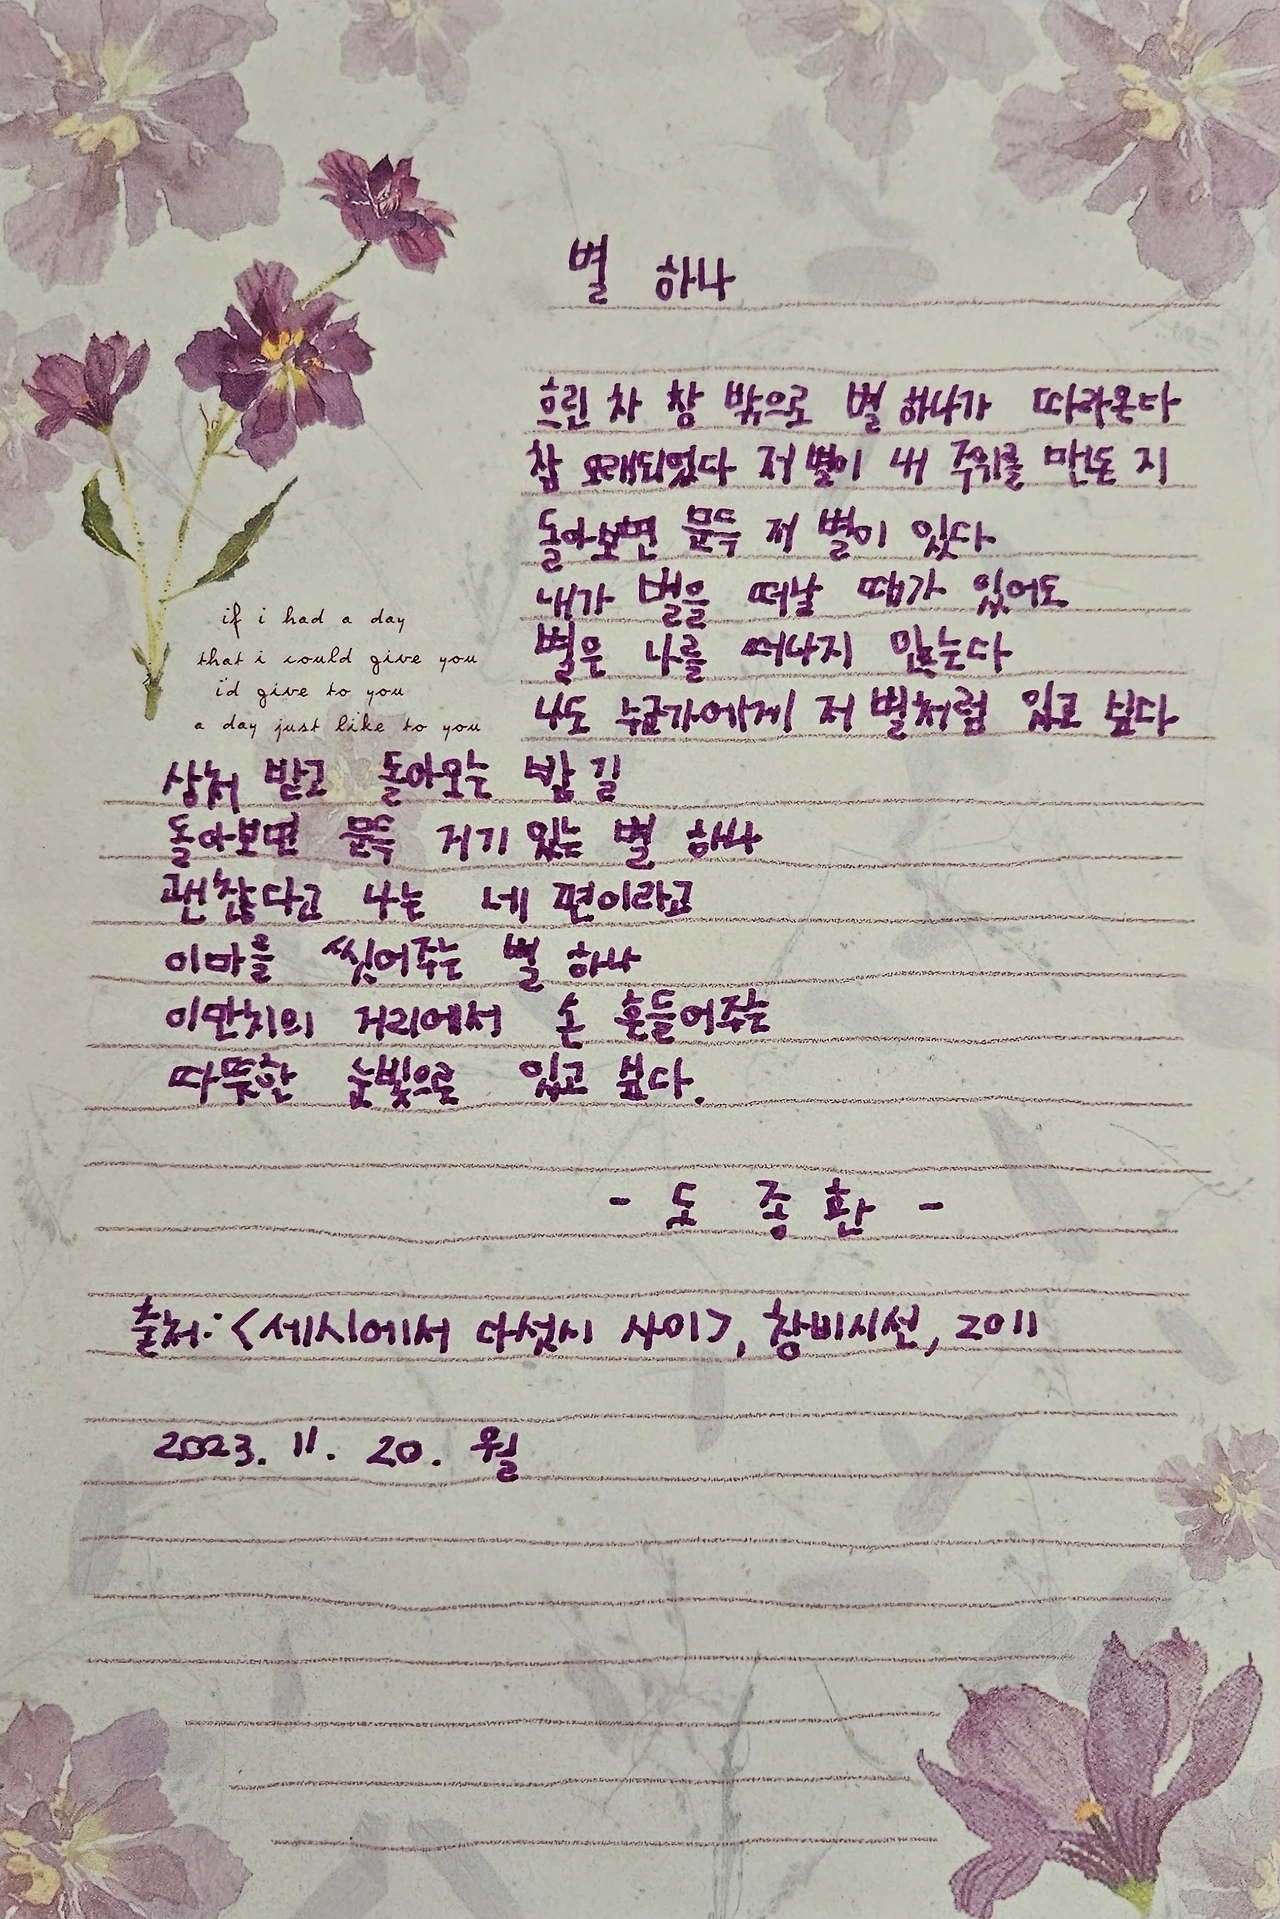 별 하나
흐린 차 창 밖으로 별 하나가 따라온다
참 오래되었다 저 별이 내 주위를 맨돈 지
돌아보면 문득 저 별이 있다
내가 별을 떠날 때가 있어도
별은 나를 떠나지 않는다
나도 누군가에게 저 별처럼 있고 싶다
상처 받고 돌아오는 밤 길
돌아보면 문득 거기 있는 별 하나
괜찮다고 나는 네 편이라고
이마를 씻어주는 별 하나
이만치의 거리에서 손 흔들어주는
따뜻한 눈빛으로 있고 싶다.
- 도 종 환 -
출처: <세시에서 다섯시 사이>, 창비시선, 2011
2023. 11. 20. 월
if i had a day
that i could give you
i'd give to you
a day just like to you